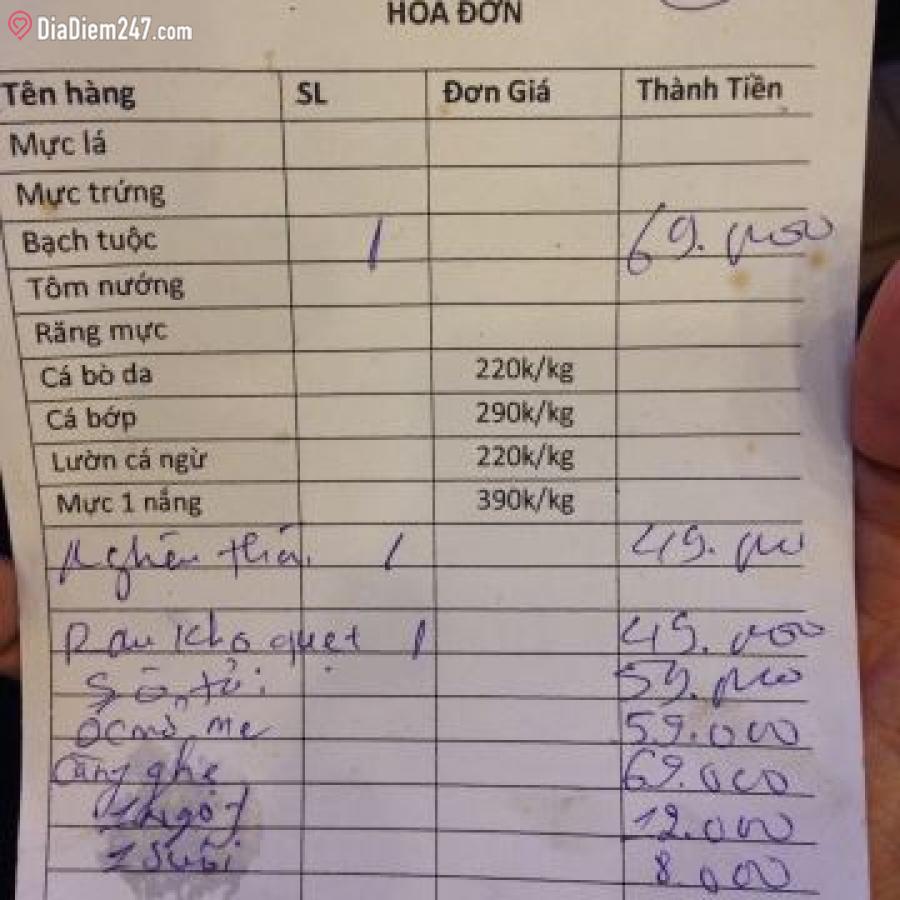 DiaDiem247.com
HÓA ĐƠN
Tên hàng SL Đơn Giá Thành Tiền
Mực lá
Mực trứng
Bạch tuộc 1 69.000
Tôm nướng
Răng mực
Cá bò da 220k/kg
Cá bớp 290k/kg
Lườn cá ngừ 220k/kg
Mực 1 nắng 390k/kg
Nghêu thái 1 49.000
Rau kho quẹt 1 49.000
59.000
Ốc mỡ me 59.000
Càng ghẹ 69.000
1 Ngọt 12.000
1 Suối 8.000